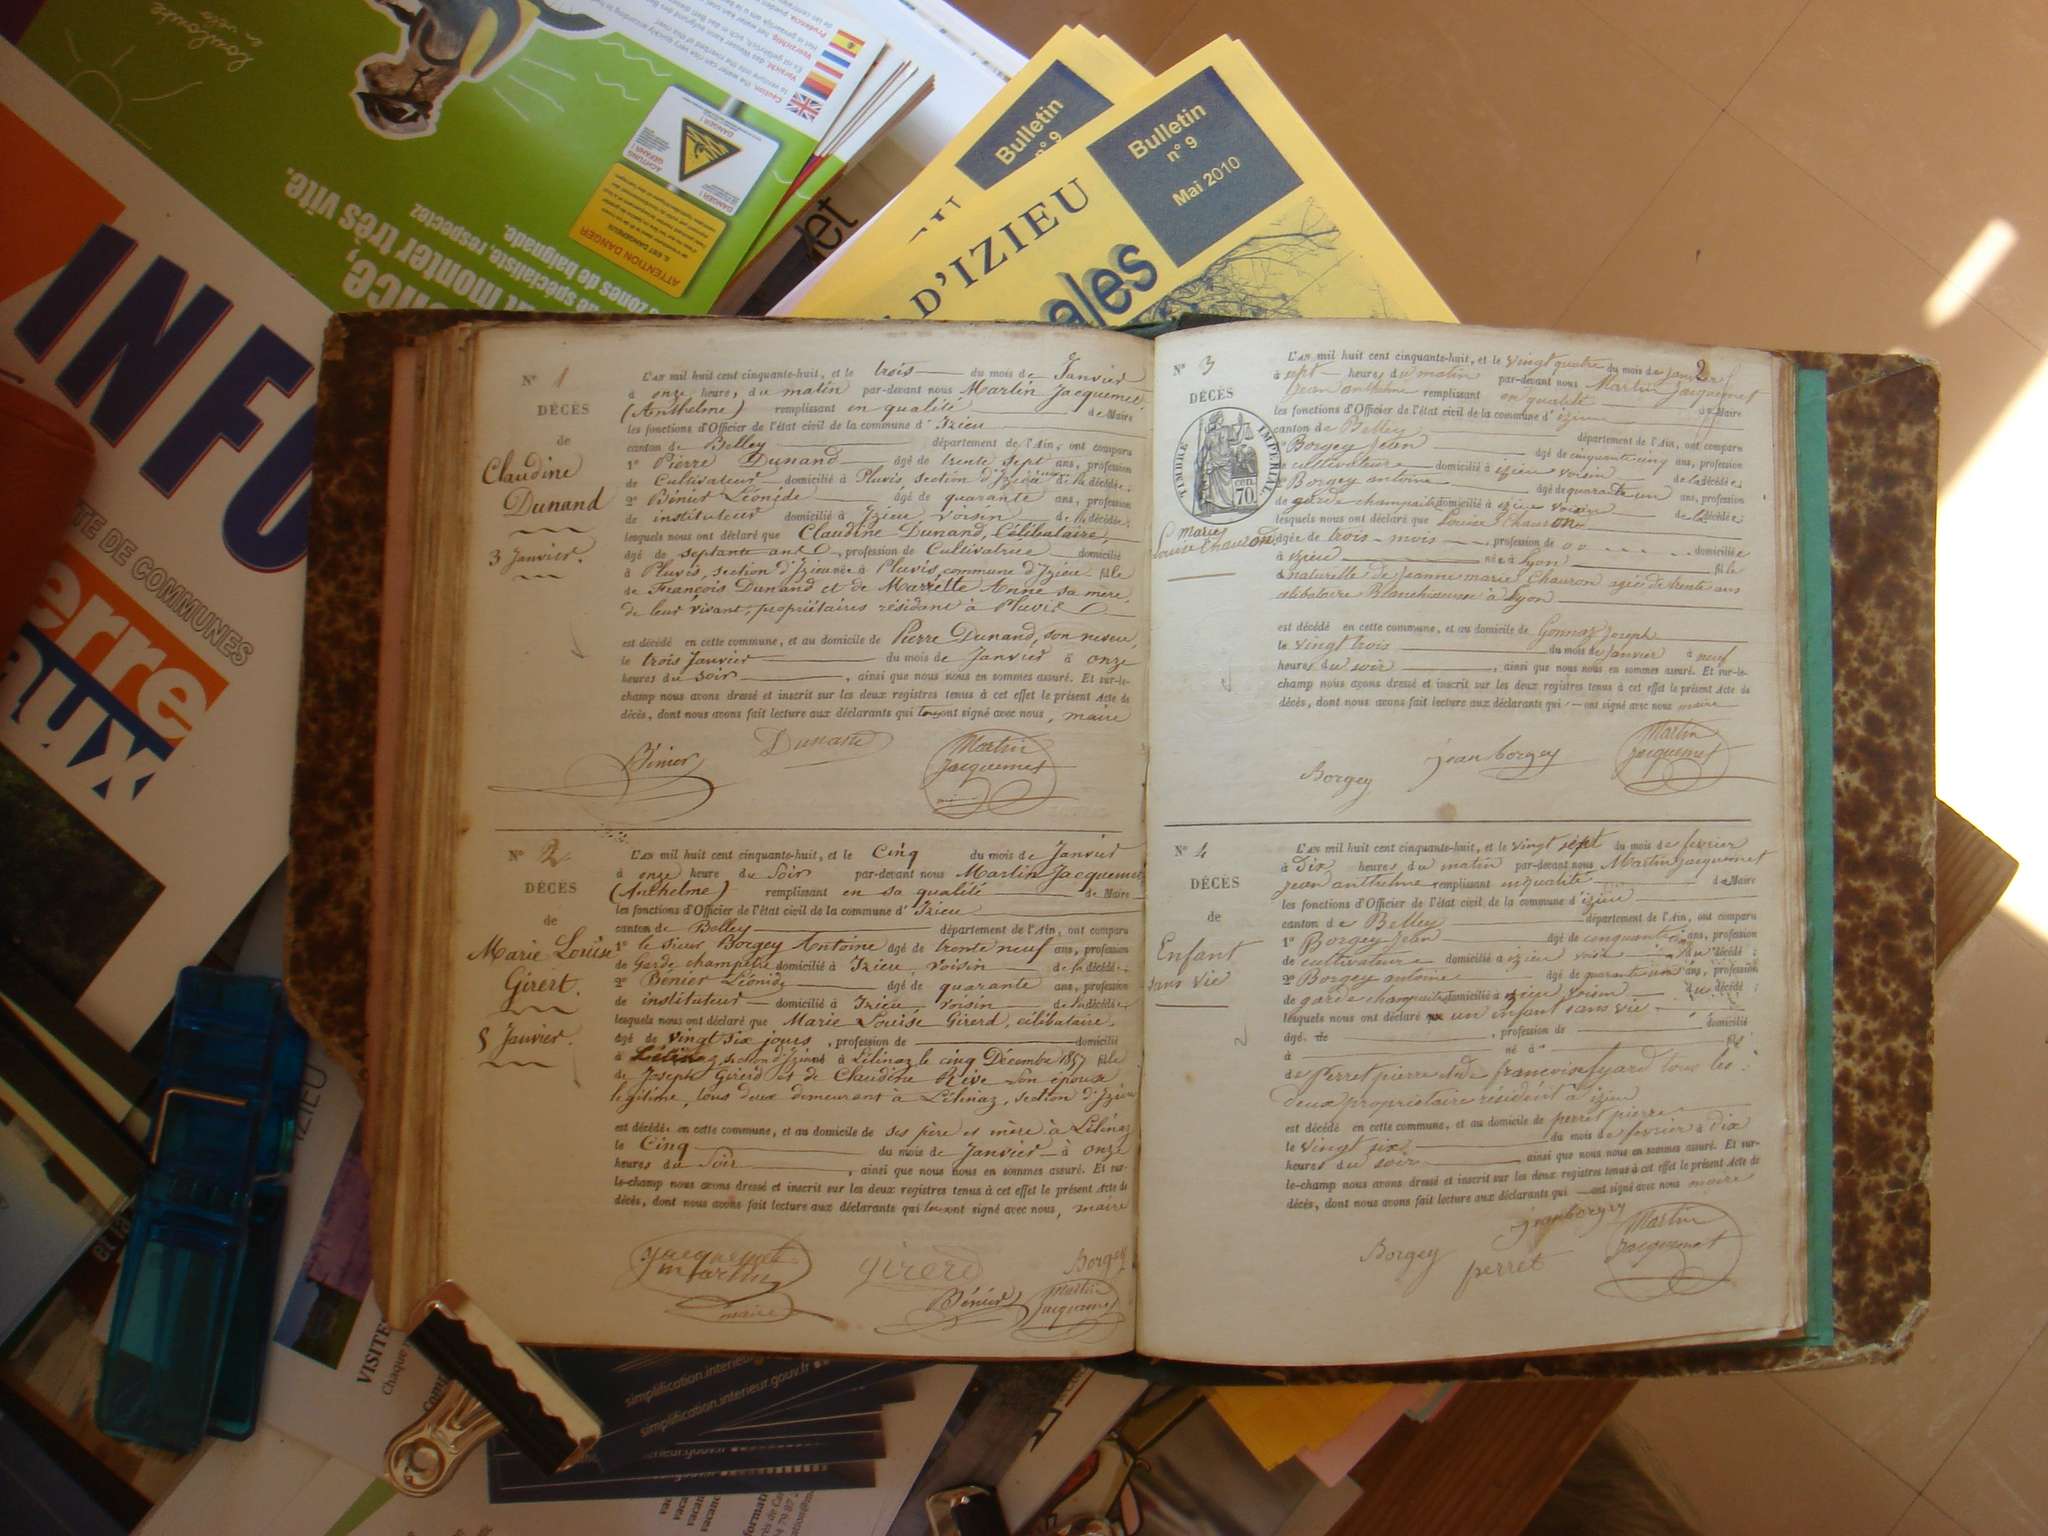 Bulletin
n° 9
Bulletin
n° 9
Mai 2010
D'IZIEU
ales
INFO
TE DE COMMUNES
erre
aux
très vite.
zones de baignade.
ATTENTION DANGER
N° 1
DÉCÈS
de
Claudine
Dunand
3 Janvier.
L'AN mil huit cent cinquante-huit, et le trois du mois de Janvier
à onze heure, du matin par-devant nous Martin Jacquemet
(Anthelme) remplissant en qualité de Maire
les fonctions d'Officier de l'état civil de la commune d'Izieu
canton de Belley département de l'Ain, ont comparu
1° Pierre Dunand âgé de trente sept ans, profession
de Cultivateur domicilié à Pluvis section d'Izieu de la décédée;
2° Bénier Léonide âgé de quarante ans, profession
de instituteur domicilié à Izieu voisin de la décédée;
lesquels nous ont déclaré que Claudine Dunand, Célibataire,
âgé de septante ans, profession de Cultivatrice domicilié
à Pluvis, section d'Izieu née à Pluvis, commune d'Izieu fille
de François Dunand et de Mariette Anne sa mère,
de leur vivant, propriétaires résidant à Pluvis
est décédé en cette commune, et au domicile de Pierre Dunand, son neveu
le trois Janvier du mois de Janvier à onze
heures du soir, ainsi que nous nous en sommes assuré. Et sur-le-
champ nous avons dressé et inscrit sur les deux registres tenus à cet effet le présent Acte de
décès, dont nous avons fait lecture aux déclarants qui ont signé avec nous, maire
Bénier Dunand Martin
Jacquemet
N° 2
DÉCÈS
de
Marie Louise
Girerd.
5 Janvier.
L'AN mil huit cent cinquante-huit, et le Cinq du mois de Janvier
à onze heure du Soir par-devant nous Martin Jacquemet
(Anthelme) remplissant en sa qualité de Maire
les fonctions d'Officier de l'état civil de la commune d'Izieu
canton de Belley département de l'Ain, ont comparu
1° le sieur Borgey Antoine âgé de trente neuf ans, profession
de Garde champêtre domicilié à Izieu, voisin de la décédée;
2° Bénier Léonide âgé de quarante ans, profession
de instituteur domicilié à Izieu voisin de la décédée,
lesquels nous ont déclaré que Marie Louise Girerd, célibataire,
âgé de vingt six jours, profession de domicilié
à Lélinaz, section d'Izieu né à Lélinaz le cinq Décembre 1857 fille
de Joseph Girerd et de Claudine Rive son épouse
légitime, tous deux demeurant à Lélinaz, section d'Izieu
est décédé en cette commune, et au domicile de ses père et mère à Lélinaz
le Cinq du mois de Janvier à onze
heures du Soir, ainsi que nous nous en sommes assuré. Et sur-
le-champ nous avons dressé et inscrit sur les deux registres tenus à cet effet le présent Acte de
décès, dont nous avons fait lecture aux déclarants qui ont signé avec nous, maire
Jacquemet
Martin
maire
Girerd Borgey
Bénier Martin
Jacquemet
N° 3
2
DÉCÈS
TIMBRE IMPÉRIAL
70 cen.
marie
Louise Chauron
L'AN mil huit cent cinquante-huit, et le vingt quatre du mois de janvier
à sept heures du matin par-devant nous Martin Jacquemet
Jean anthelme remplissant en qualité de Maire
les fonctions d'Officier de l'état civil de la commune d'izieu
canton de Belley département de l'Ain, ont comparu
1° Borgey Jean âgé de cinquante cinq ans, profession
de cultivateur domicilié à izieu voisin de la décédée;
2° Borgey antoine âgé de quarante un ans, profession
de garde champaitre domicilié à izieu voisin de la décédée;
lesquels nous ont déclaré que Louise Chauron
âgée de trois mois, profession de domiciliée
à izieu née à Lyon fille
naturelle de Jeanne marie Chauron agée de trente ans
célibataire Blanchisseuse à Lyon
est décédé en cette commune, et au domicile de Gonnaz Joseph
le vingt trois du mois de janvier à neuf
heures du soir, ainsi que nous nous en sommes assuré. Et sur-le-
champ nous avons dressé et inscrit sur les deux registres tenus à cet effet le présent Acte de
décès, dont nous avons fait lecture aux déclarants qui ont signé avec nous maire
Borgey jean borgey Martin
Jacquemet
N° 4
DÉCÈS
de
Enfant
sans vie
L'AN mil huit cent cinquante-huit, et le vingt sept du mois de fevrier
à Dix heures du matin par-devant nous Martin Jacquemet
jean anthelme remplissant en qualité de Maire
les fonctions d'Officier de l'état civil de la commune d'izieu
canton de Belley département de l'Ain, ont comparu
1° Borgey Jean âgé de cinquante cinq ans, profession
de cultivateur domicilié à izieu voisin du décédé;
2° Borgey antoine âgé de quarante un ans, profession
de garde champaitre domicilié à izieu voisin du décédé;
lesquels nous ont déclaré un enfant sans vie
âgé de, profession de domicilié
à né à fil
de Perret pierre et de francoise fyard tous les
deux propriétaire résident à izieu
est décédé en cette commune, et au domicile de perret pierre
le vingt six du mois de fevrier à dix
heures du soir, ainsi que nous nous en sommes assuré. Et sur-
le-champ nous avons dressé et inscrit sur les deux registres tenus à cet effet le présent Acte de
décès, dont nous avons fait lecture aux déclarants qui ont signé avec nous maire
Borgey jean borgey
perret Martin
Jacquemet
IZIEU
VISITES
simplification.interieur.gouv.fr
simplification.interieur.gouv.fr